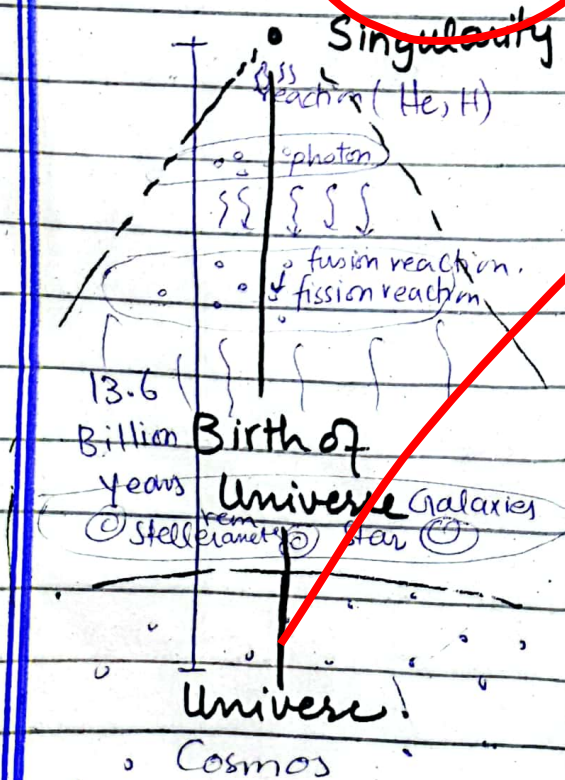 Singularity
reaction (He, H)
photon
fusion reaction.
fission reaction
13.6
Billion
years
Birth of
Universe
Galaxies
Star
Universe!
Cosmos